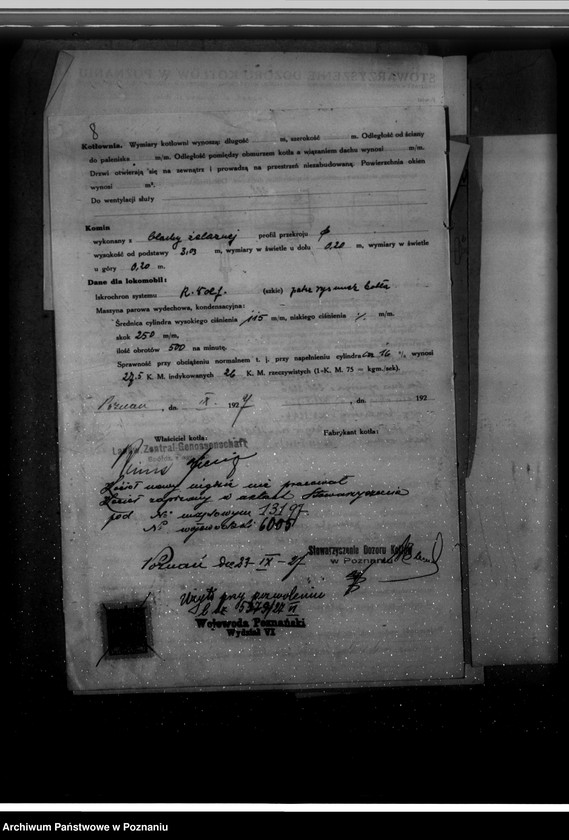 STOWARZYSZENIE DOZORU KOTŁÓW W POZNANIU
8
Kotłownia. Wymiary kotłowni wynoszą: długość m, szerokość m. Odległość od ściany
do paleniska m/m. Odległość pomiędzy obmurzem kotła a wiązaniem dachu wynosi m/m.
Drzwi otwierają się na zewnątrz i prowadzą na przestrzeń niezabudowaną. Powierzchnia okien
wynosi m².
Do wentylacji służy
Komin
wykonany z blachy żelaznej profil przekroju
wysokość od podstawy 3,03 m, wymiary w świetle u dołu 0,20 m, wymiary w świetle
u góry 0,20 m.
Dane dla lokomobil:
Iskrochron systemu R. Wolf. (szkic) patrz rysunek kotła
Maszyna parowa wydechowa, kondensacyjna:
Średnica cylindra wysokiego ciśnienia 115 m/m, niskiego ciśnienia m/m.
skok 250 m/m,
ilość obrotów 500 na minutę.
Sprawność przy obciążeniu normalnem t. j. przy napełnieniu cylindra 16 %, wynosi
27,5 K. M. indykowanych 26 K. M. rzeczywistych (1-K. M. 75 — kgm./sek).
Poznań, dn. IX. 1927 , dn. 192
Właściciel kotła: Fabrykant kotła:
Landw. Zentral-Genossenschaft
Kocioł nowy nigdzie nie pracował
Kocioł zapisany w aktach Stowarzyszenia
pod No wojskowym 13197
No wojewódzki 6005
Poznań dn 23 IX - 27
Stowarzyszenie Dozoru Kotłów
w Poznaniu
Użyto przy pozwoleniu
L. dz. 5379/27 VI
Wojewoda Poznański
Wydział VI
Archiwum Państwowe w Poznaniu